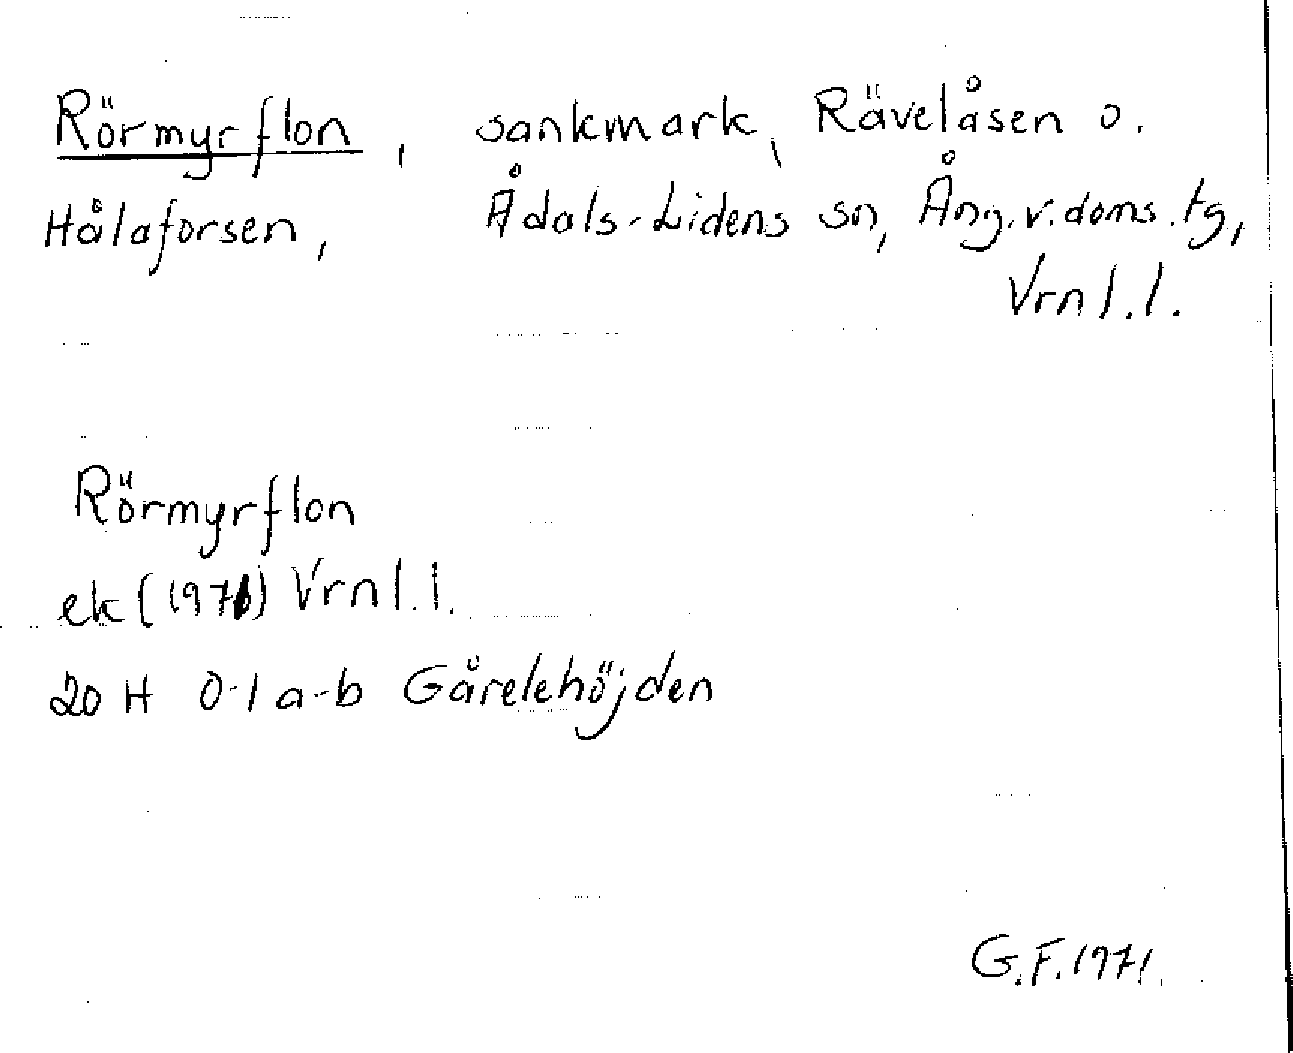 Rörmyrflon, sankmark, Rävelåsen o.
Hålaforsen, Ådals-Lidens sn, Ång.v.doms.tg,
Vrnl.l.
Rörmyrflon
ek (1971) Vrnl.l.
20 H 0-1 a-b Gårelehöjden
G.F.1971.